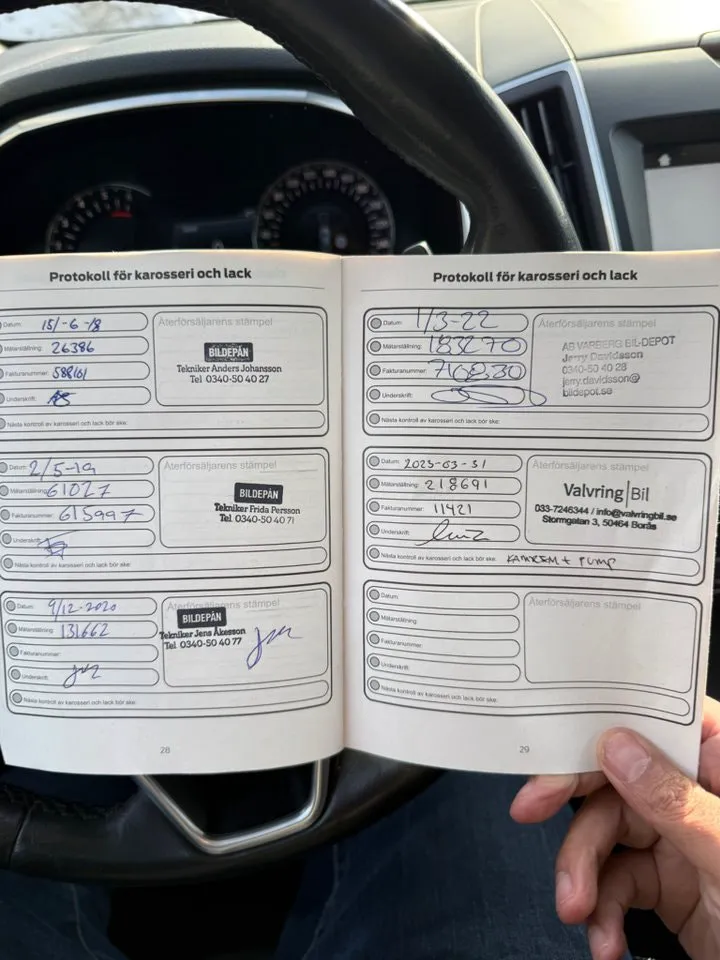 Protokoll för karosseri och lack
Datum: 15/-6 -18
Mätarställning: 26386
Fakturanummer: 588161
Underskrift:
Återförsäljarens stämpel
BILDEPÅN
Tekniker Anders Johansson
Tel 0340-50 40 27
Nästa kontroll av karosseri och lack bör ske:
Datum: 2/5-19
Mätarställning: 61027
Fakturanummer: 615997
Underskrift:
Återförsäljarens stämpel
BILDEPÅN
Tekniker Frida Persson
Tel 0340-50 40 71
Nästa kontroll av karosseri och lack bör ske:
Datum: 9/12-2020
Mätarställning: 131662
Fakturanummer:
Underskrift:
Återförsäljarens stämpel
BILDEPÅN
Tekniker Jens Åkesson
Tel 0340-50 40 77
Nästa kontroll av karosseri och lack bör ske:
28
Protokoll för karosseri och lack
Datum: 1/3-22
Mätarställning: 183270
Fakturanummer: 710830
Underskrift:
Återförsäljarens stämpel
AB VARBERG BIL-DEPOT
Jerry Davidsson
0340-50 40 28
jerry.davidsson@
bildepot.se
Nästa kontroll av karosseri och lack bör ske:
Datum: 2023-03-31
Mätarställning: 218691
Fakturanummer: 11421
Underskrift:
Återförsäljarens stämpel
Valvring|Bil
033-7246344 / info@valvringbil.se
Stormgatan 3, 50464 Borås
Nästa kontroll av karosseri och lack bör ske: KAMREM + PUMP
Datum:
Mätarställning:
Fakturanummer:
Underskrift:
Återförsäljarens stämpel
Nästa kontroll av karosseri och lack bör ske:
29